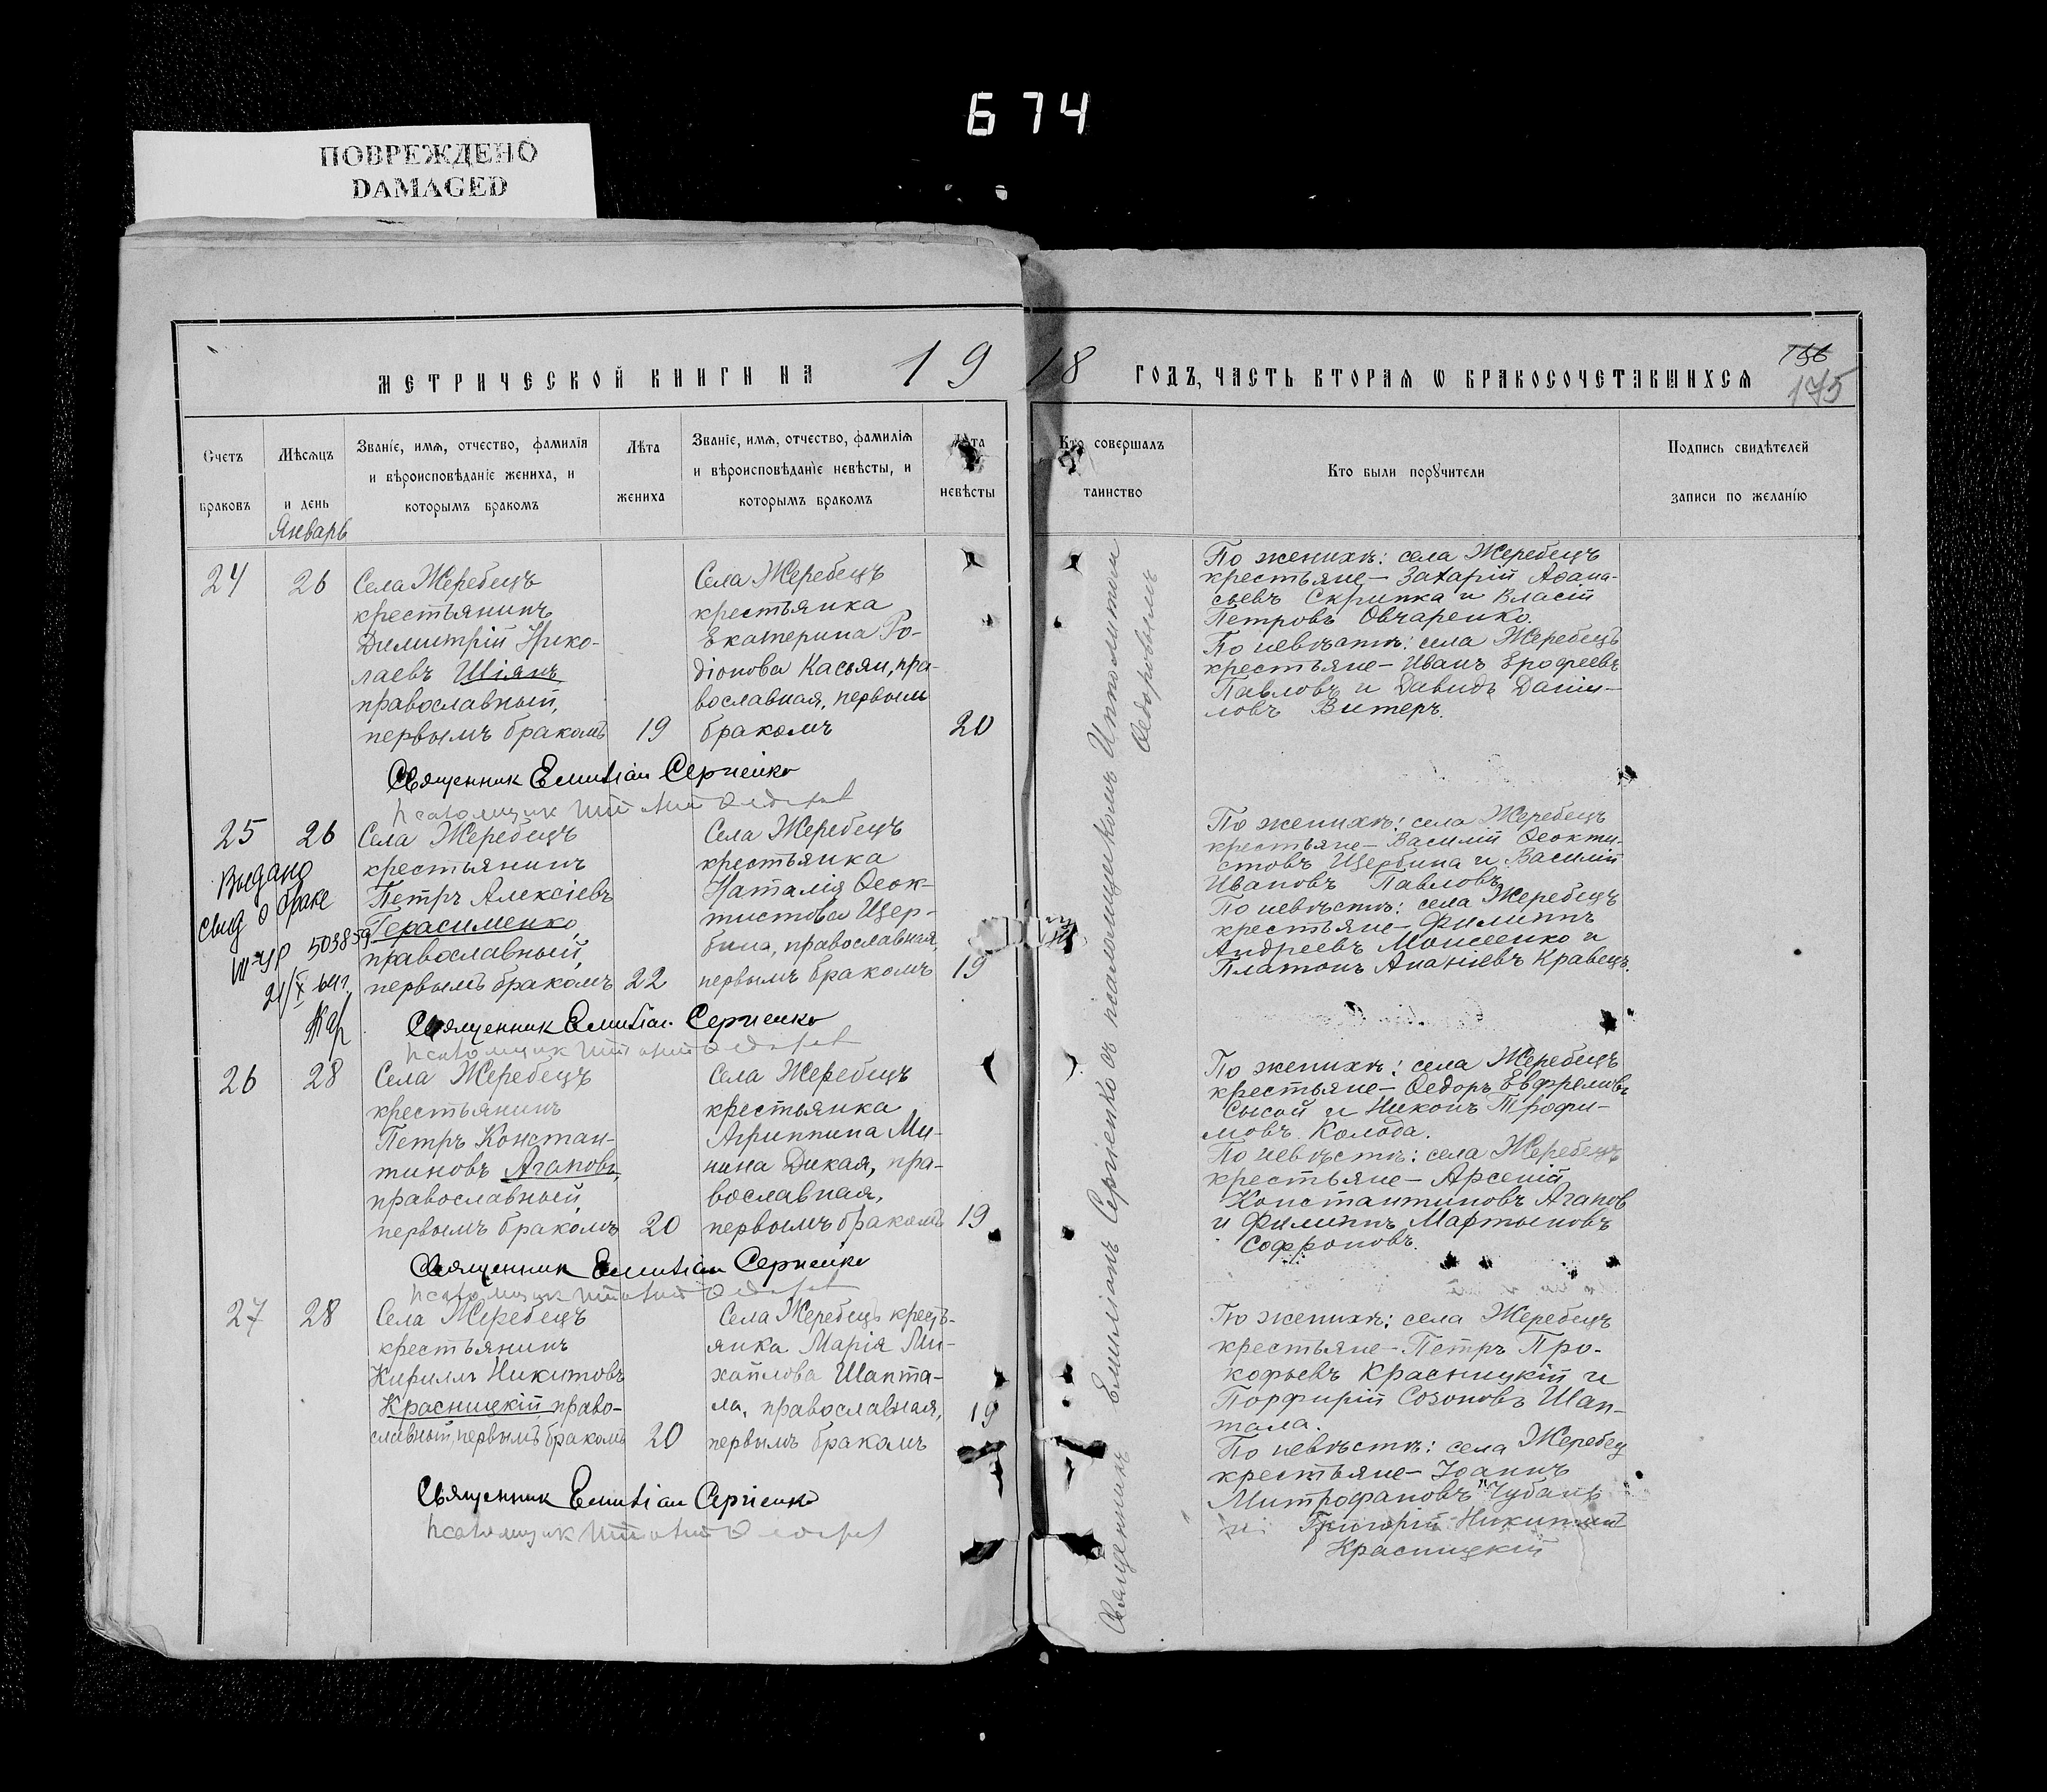 674
ПОВРЕЖДЕНО
DAMAGED
МЕТРИЧЕСКОЙ КНИГИ НА 19
18 ГОДЪ, ЧАСТЬ ВТОРАЯ Ѡ БРАКОСОЧЕТАВШИХСЯ
175
Счетъ браковъ
Мѣсяцъ и день
Званіе, имя, отчество, фамилія
и вѣроисповѣданіе жениха, и
которымъ бракомъ
Лѣта жениха
Званіе, имя, отчество, фамилія
и вѣроисповѣданіе невѣсты, и
которымъ бракомъ
Лѣта невѣсты
Кто совершалъ
таинство
Кто были порꙋчители
Подпись свидѣтелей
записи по желанію
Январь
24
26
Села Жеребецъ
крестьянинъ
Димитрій Нико-
лаевъ Шіянъ
православный,
первымъ бракомъ
19
Села Жеребецъ
крестьянка
Екатерина Ро-
діонова Касьян, пра-
вославная, первым
бракомъ
20
По женихѣ: села Жеребецъ
крестьяне – Захарій Аѳана-
сьевъ Скрипка и Власій
Петровъ Овчаренко.
По невѣстѣ: села Жеребецъ
крестьяне – Иванъ Ерофеевъ
Павловъ и Давидъ Даніи-
ловъ Витеръ.
Священник Емиліан Сергіенко
25
26
Выдано
свид о браке
503859
Села Жеребецъ
крестьянинъ
Петръ Алексіевъ
Герасименко,
православный,
первымъ бракомъ
22
Села Жеребецъ
крестьянка
Наталія Ѳеок-
тистова Щер-
бина, православная,
первымъ бракомъ
19
По женихѣ: села Жеребецъ
крестьяне – Василій Ѳеокти-
стовъ Щербина и Василій
Ивановъ Павловъ
По невѣстѣ: села Жеребецъ
крестьяне – Филиппъ
Андреевъ Моисеенко и
Платонъ Ананіевъ Кравецъ.
Священник Емиліан Сергіенко
26
28
Села Жеребецъ
крестьянинъ
Петръ Констан-
тиновъ Агаповъ,
православный,
первымъ бракомъ
20
Села Жеребецъ
крестьянка
Агриппина Ми-
нина Дикая, пра-
вославная,
первымъ бракомъ
19
По женихѣ: села Жеребецъ
крестьяне – Ѳедоръ Евфремовъ
Сысой и Никонъ Трофи-
мовъ Колода.
По невѣстѣ: села Жеребецъ
крестьяне – Арсеній
Константиновъ Агапов
и Филиппъ Мартыновъ
Софроновъ.
Священник Емиліан Сергіенко
27
28
Села Жеребецъ
крестьянинъ
Кириллъ Никитовъ
Красницкій, право-
славный, первымъ бракомъ
20
Села Жеребецъ крест-
янка Марія Ми-
хайлова Шапта-
ла, православная,
первымъ бракомъ
19
По женихѣ: села Жеребецъ
крестьяне – Петръ Про-
кофьевъ Красницкій и
Порфирій Созоновъ Шап-
тала.
По невѣстѣ: села Жеребец
крестьяне – Іоаннъ
Митрофановъ Чубань
Григорій
Красницкій
Священник Емиліан Сергіенко
Священникъ Емиліанъ Сергіенко съ псаломщикомъ Ипполитом
Ѳедоровымъ